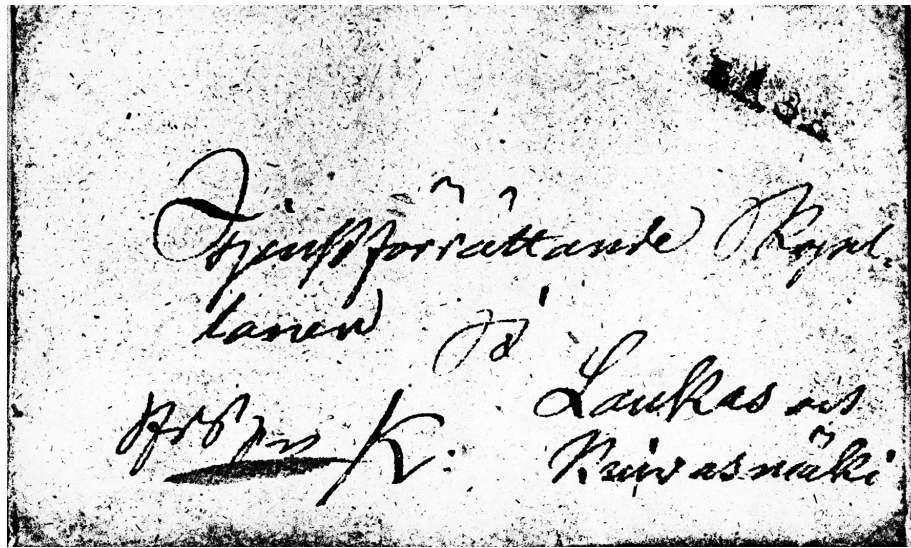 Tjenstförrättande Kapel-
lanen
på
Laukas och
K:
Kuivasmäki